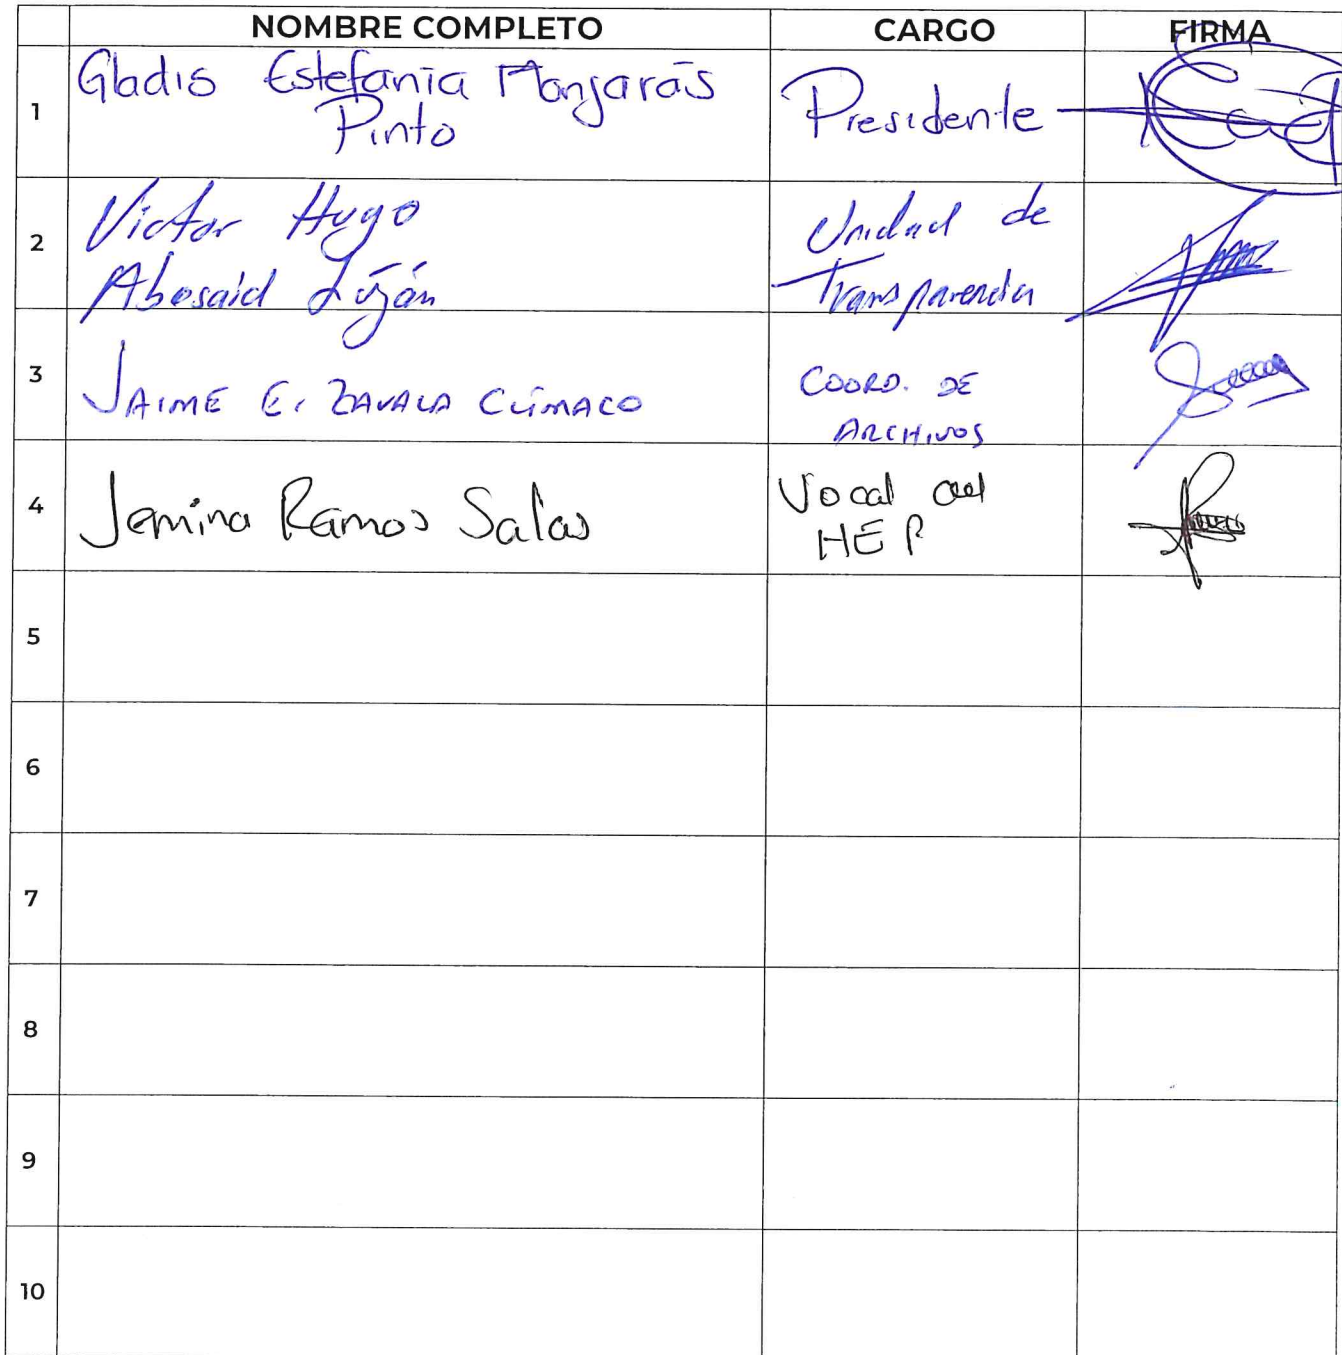 NOMBRE COMPLETO CARGO FIRMA
1 Gladis Estefanía Manjarás Pinto Presidente
2 Victor Hugo Abosaid Luján Unidad de Transparencia
3 JAIME E. ZAVALA CLÍMACO COORD. DE ARCHIVOS
4 Jemina Ramos Salas Vocal del HEP
5
6
7
8
9
10